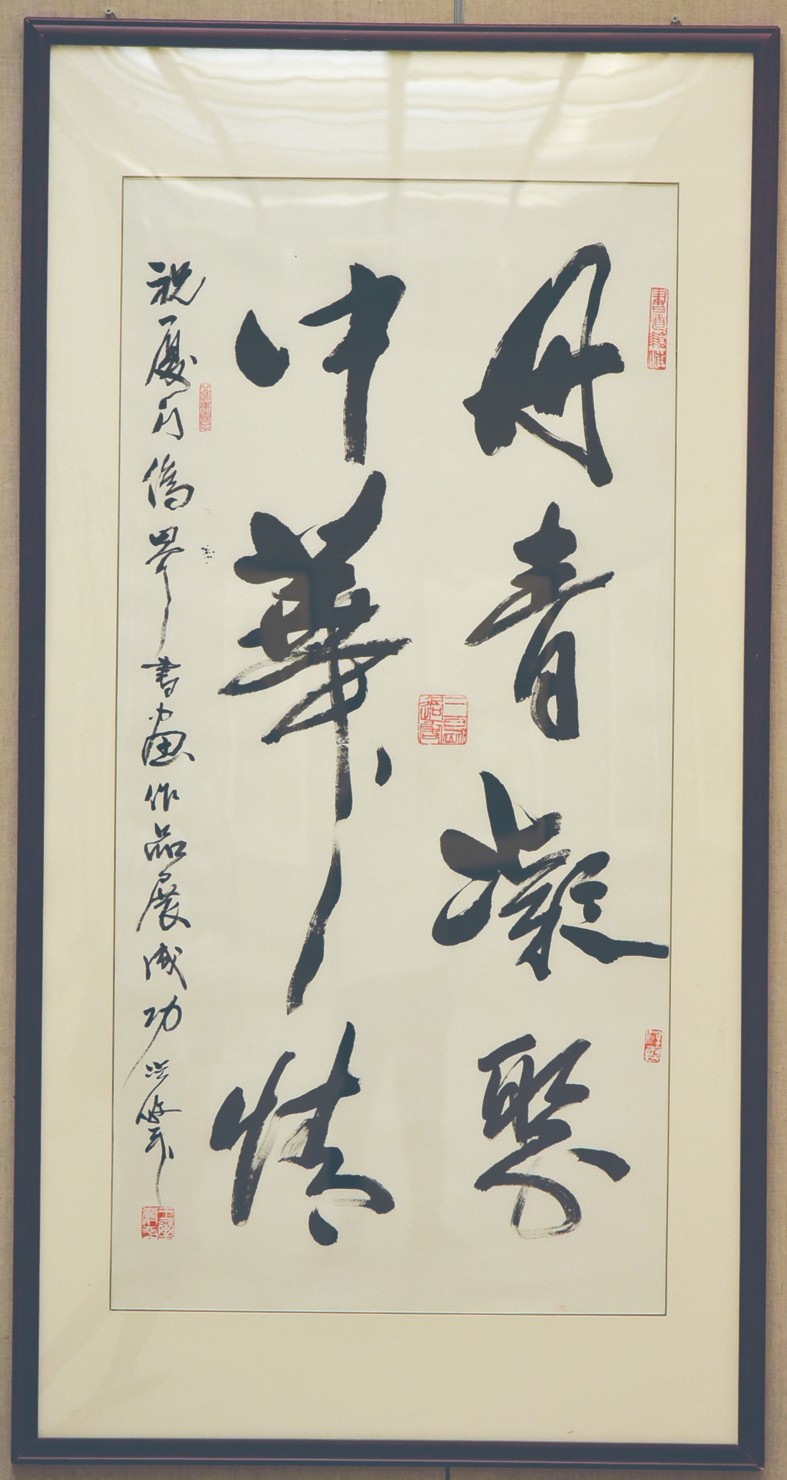 丹青凝聚
中華情
祝厦门僑界書畫作品展成功